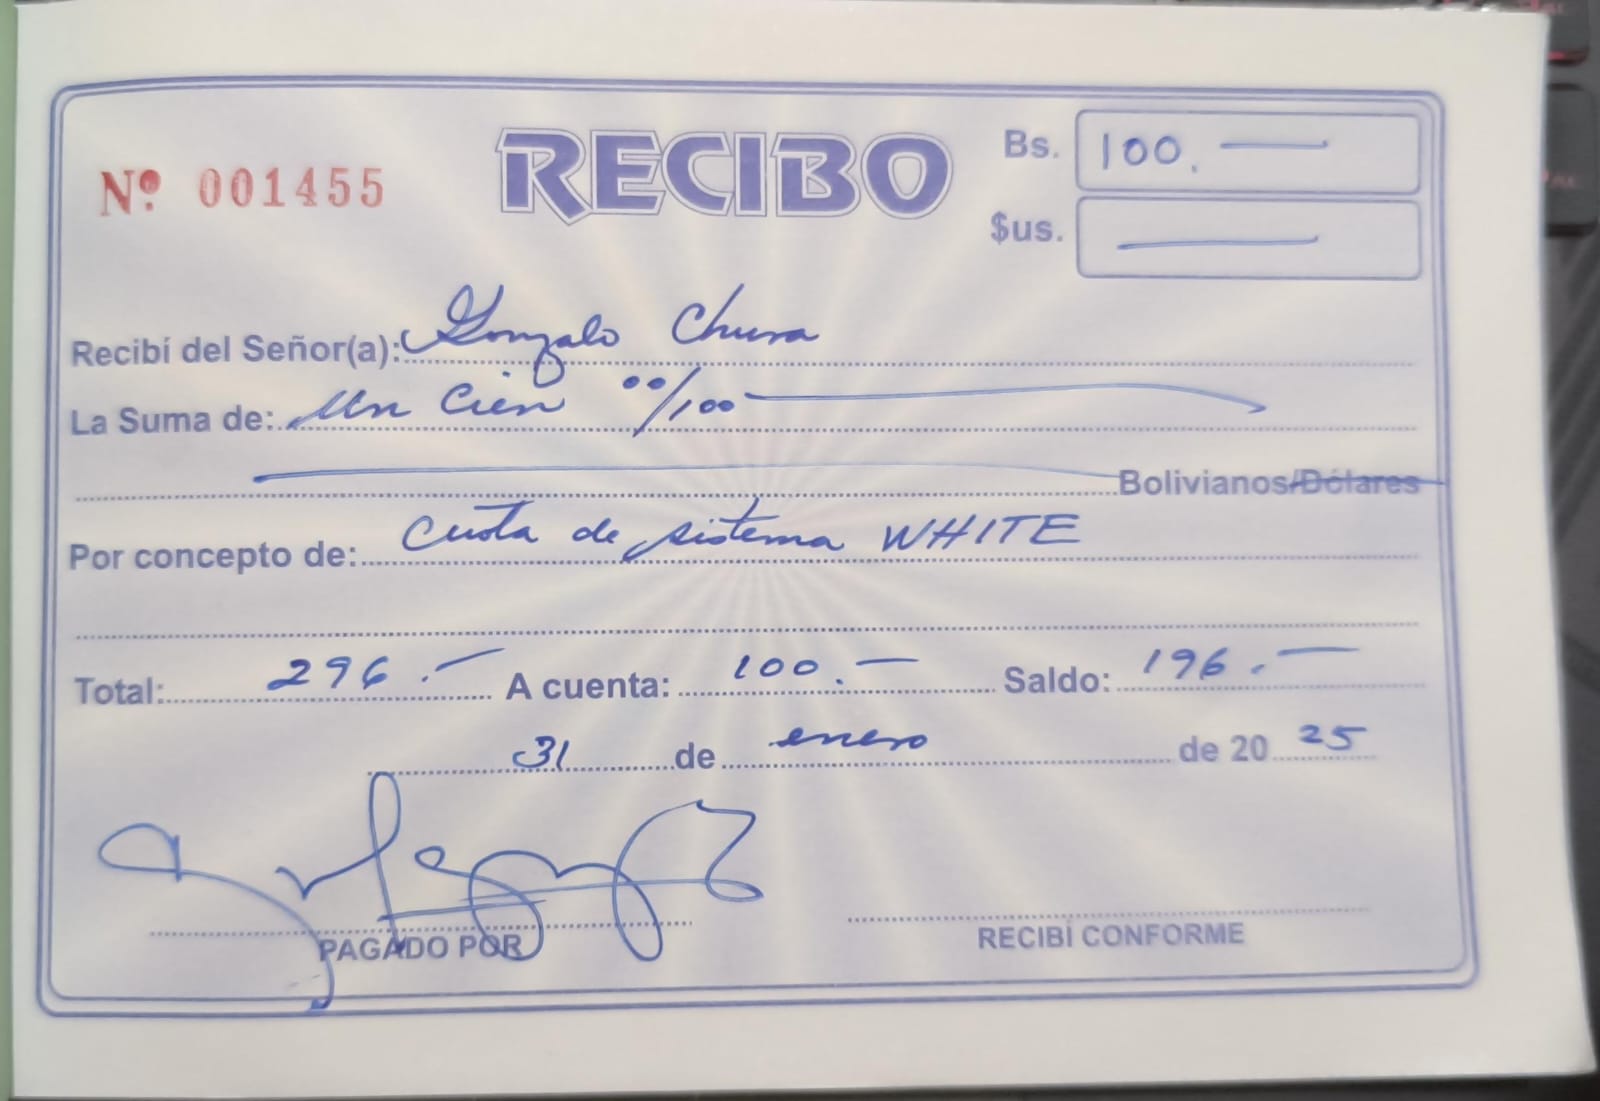 Nº 001455
RECIBO
Bs. 100.—
$us. —
Recibí del Señor(a): Gonzalo Chura
La Suma de: Un Cien 00/100
Bolivianos/Dólares
Por concepto de: Cuota de sistema WHITE
Total: 296.— A cuenta: 100.— Saldo: 196.—
31 de enero de 20 25
PAGADO POR RECIBÍ CONFORME